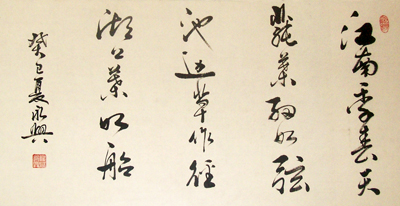 江南季春天
蓴葉細如弦
池边草作徑
湖上葉如船
癸巳夏永興